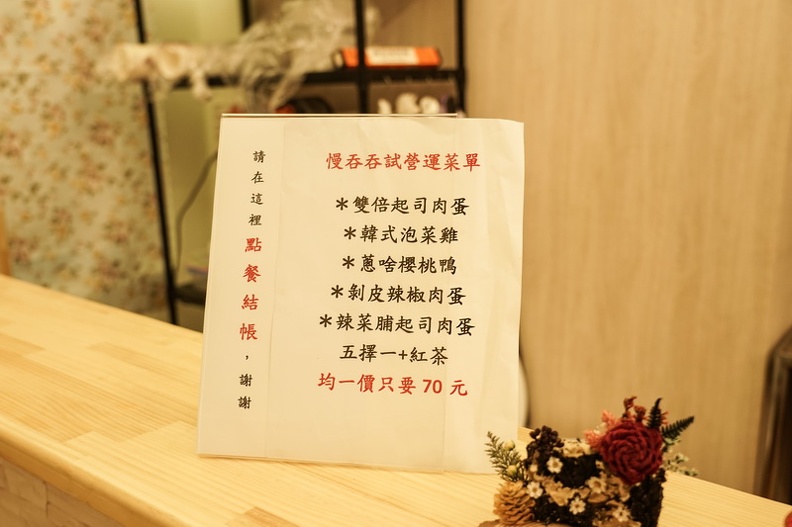 請在這裡點餐結帳，謝謝
慢吞吞試營運菜單
＊雙倍起司肉蛋
＊韓式泡菜雞
＊蔥啥櫻桃鴨
＊剝皮辣椒肉蛋
＊辣菜脯起司肉蛋
五擇一+紅茶
均一價只要 70 元